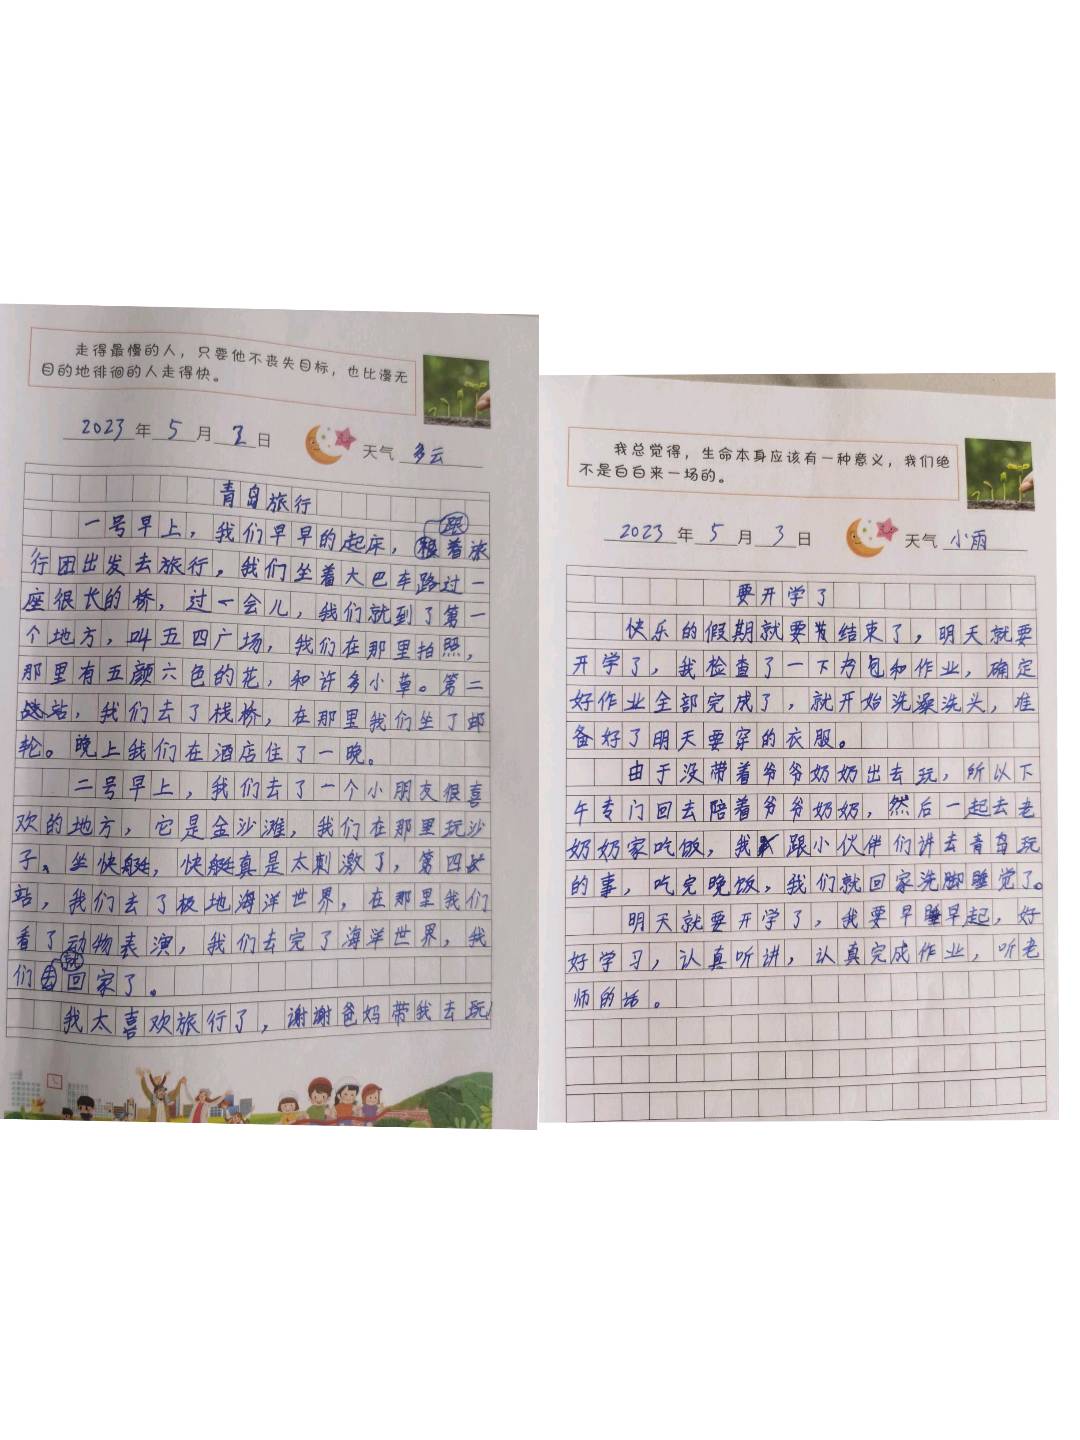 走得最慢的人，只要他不丧失目标，也比漫无
目的地徘徊的人走得快。
2023年5月2日 天气 多云
青岛旅行
一号早上，我们早早的起床，跟着旅
行团出发去旅行，我们坐着大巴车路过一
座很长的桥，过一会儿，我们就到了第一
个地方，叫五四广场，我们在那里拍照，
那里有五颜六色的花，和许多小草。第二
站，我们去了栈桥，在那里我们坐了邮
轮。晚上我们在酒店住了一晚。
二号早上，我们去了一个小朋友很喜
欢的地方，它是金沙滩，我们在那里玩沙
子、坐快艇，快艇真是太刺激了，第四
站，我们去了极地海洋世界，在那里我们
看了动物表演，我们去完了海洋世界，我
们就回家了。
我太喜欢旅行了，谢谢爸妈带我去玩！
我总觉得，生命本身应该有一种意义，我们绝
不是白白来一场的。
2023年5月3日 天气 小雨
要开学了
快乐的假期就要结束了，明天就要
开学了，我检查了一下书包和作业，确定
好作业全部完成了，就开始洗澡洗头，准
备好了明天要穿的衣服。
由于没带着爷爷奶奶出去玩，所以下
午专门回去陪着爷爷奶奶，然后一起去老
奶奶家吃饭，我跟小伙伴们讲去青岛玩
的事，吃完晚饭，我们就回家洗脚睡觉了。
明天就要开学了，我要早睡早起，好
好学习，认真听讲，认真完成作业，听老
师的话。